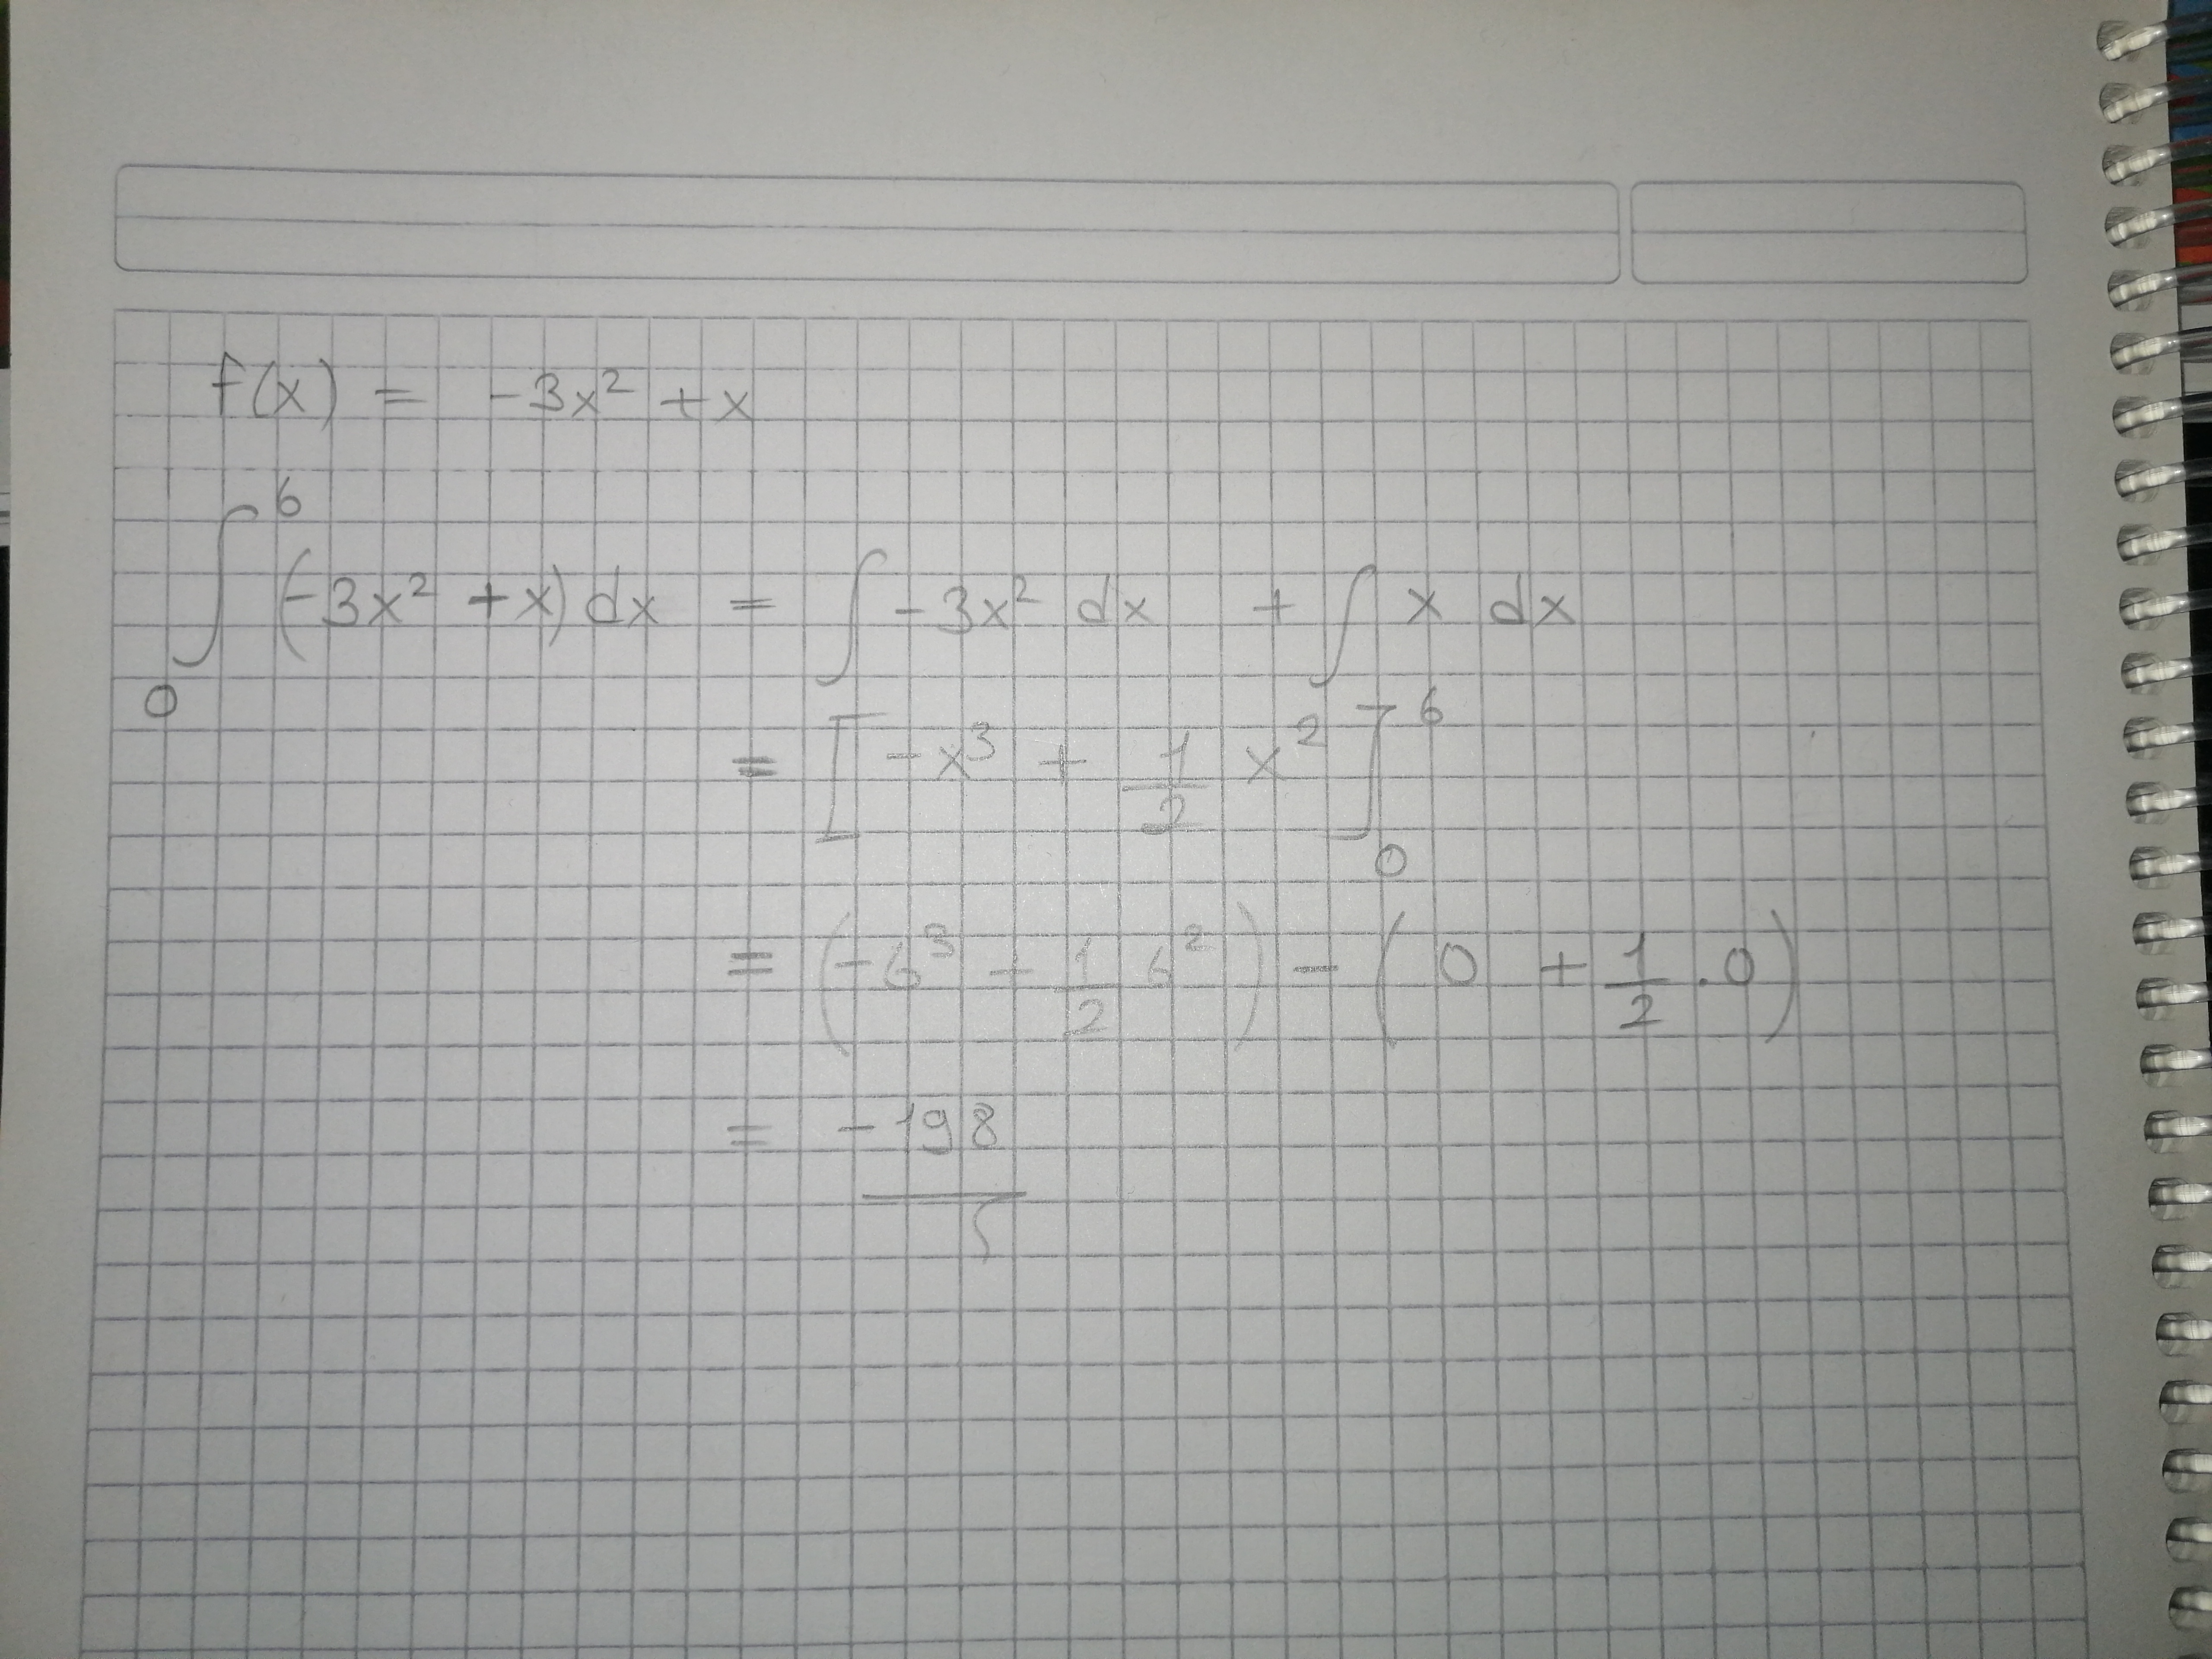 f(x) = -3x² + x
∫₀⁶ (-3x² + x) dx = ∫ -3x² dx + ∫ x dx
= [ -x³ + 1/2 x² ]₀⁶
= (-6³ - 1/2 6²) - (0 + 1/2 . 0)
= -198